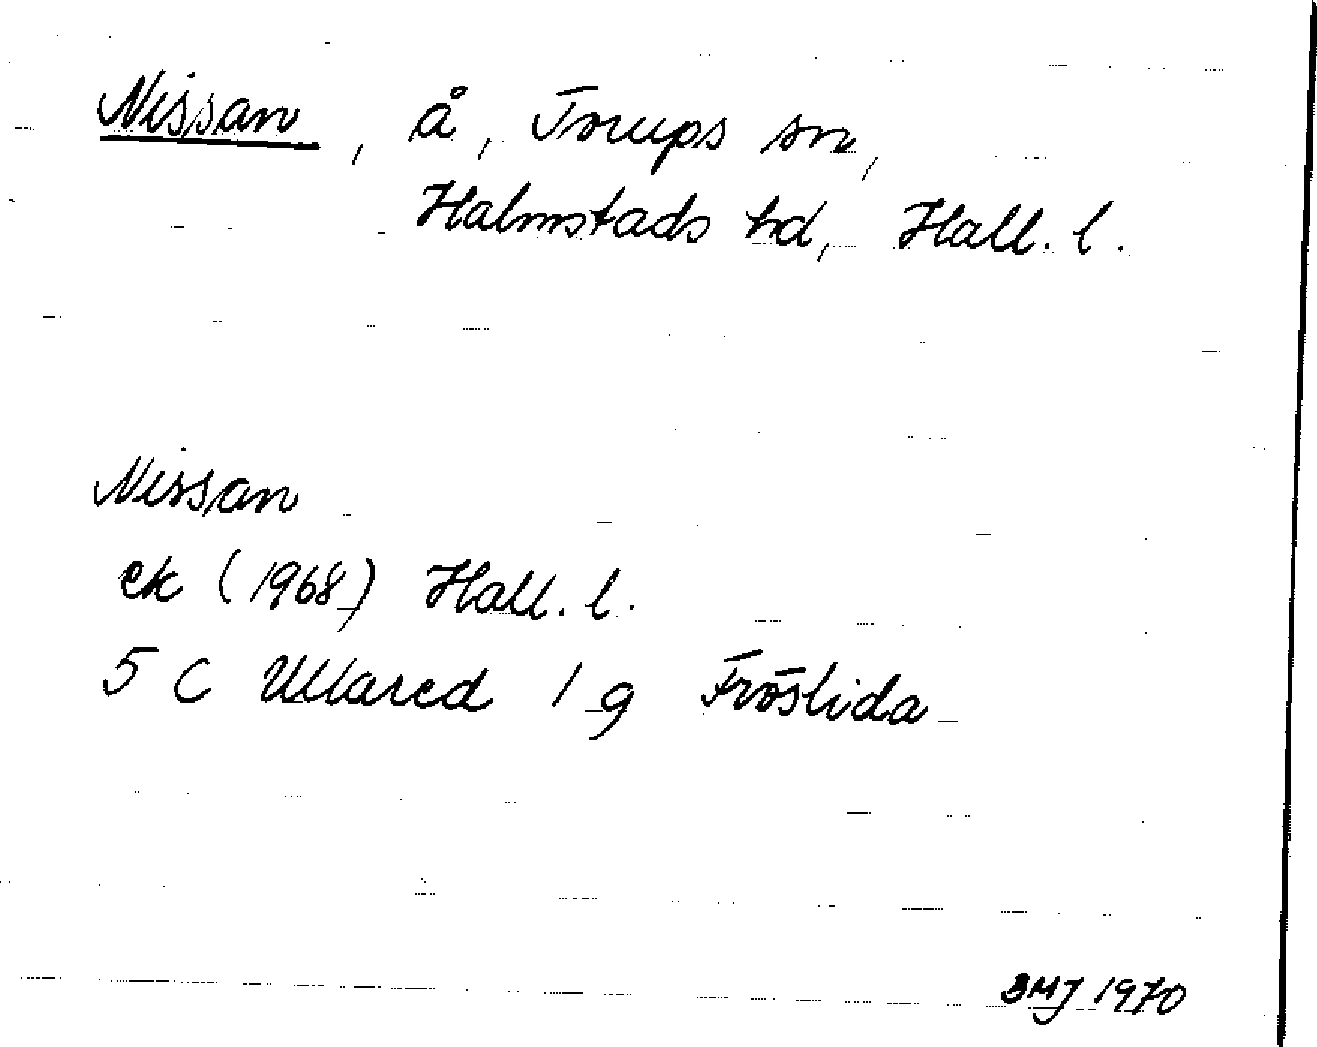 Nissan, å, Torups sn,
Halmstads hd, Hall. l.
Nissan
ek (1968) Hall. l.
5 C Ullared 1 g Fröslida
BMJ 1970